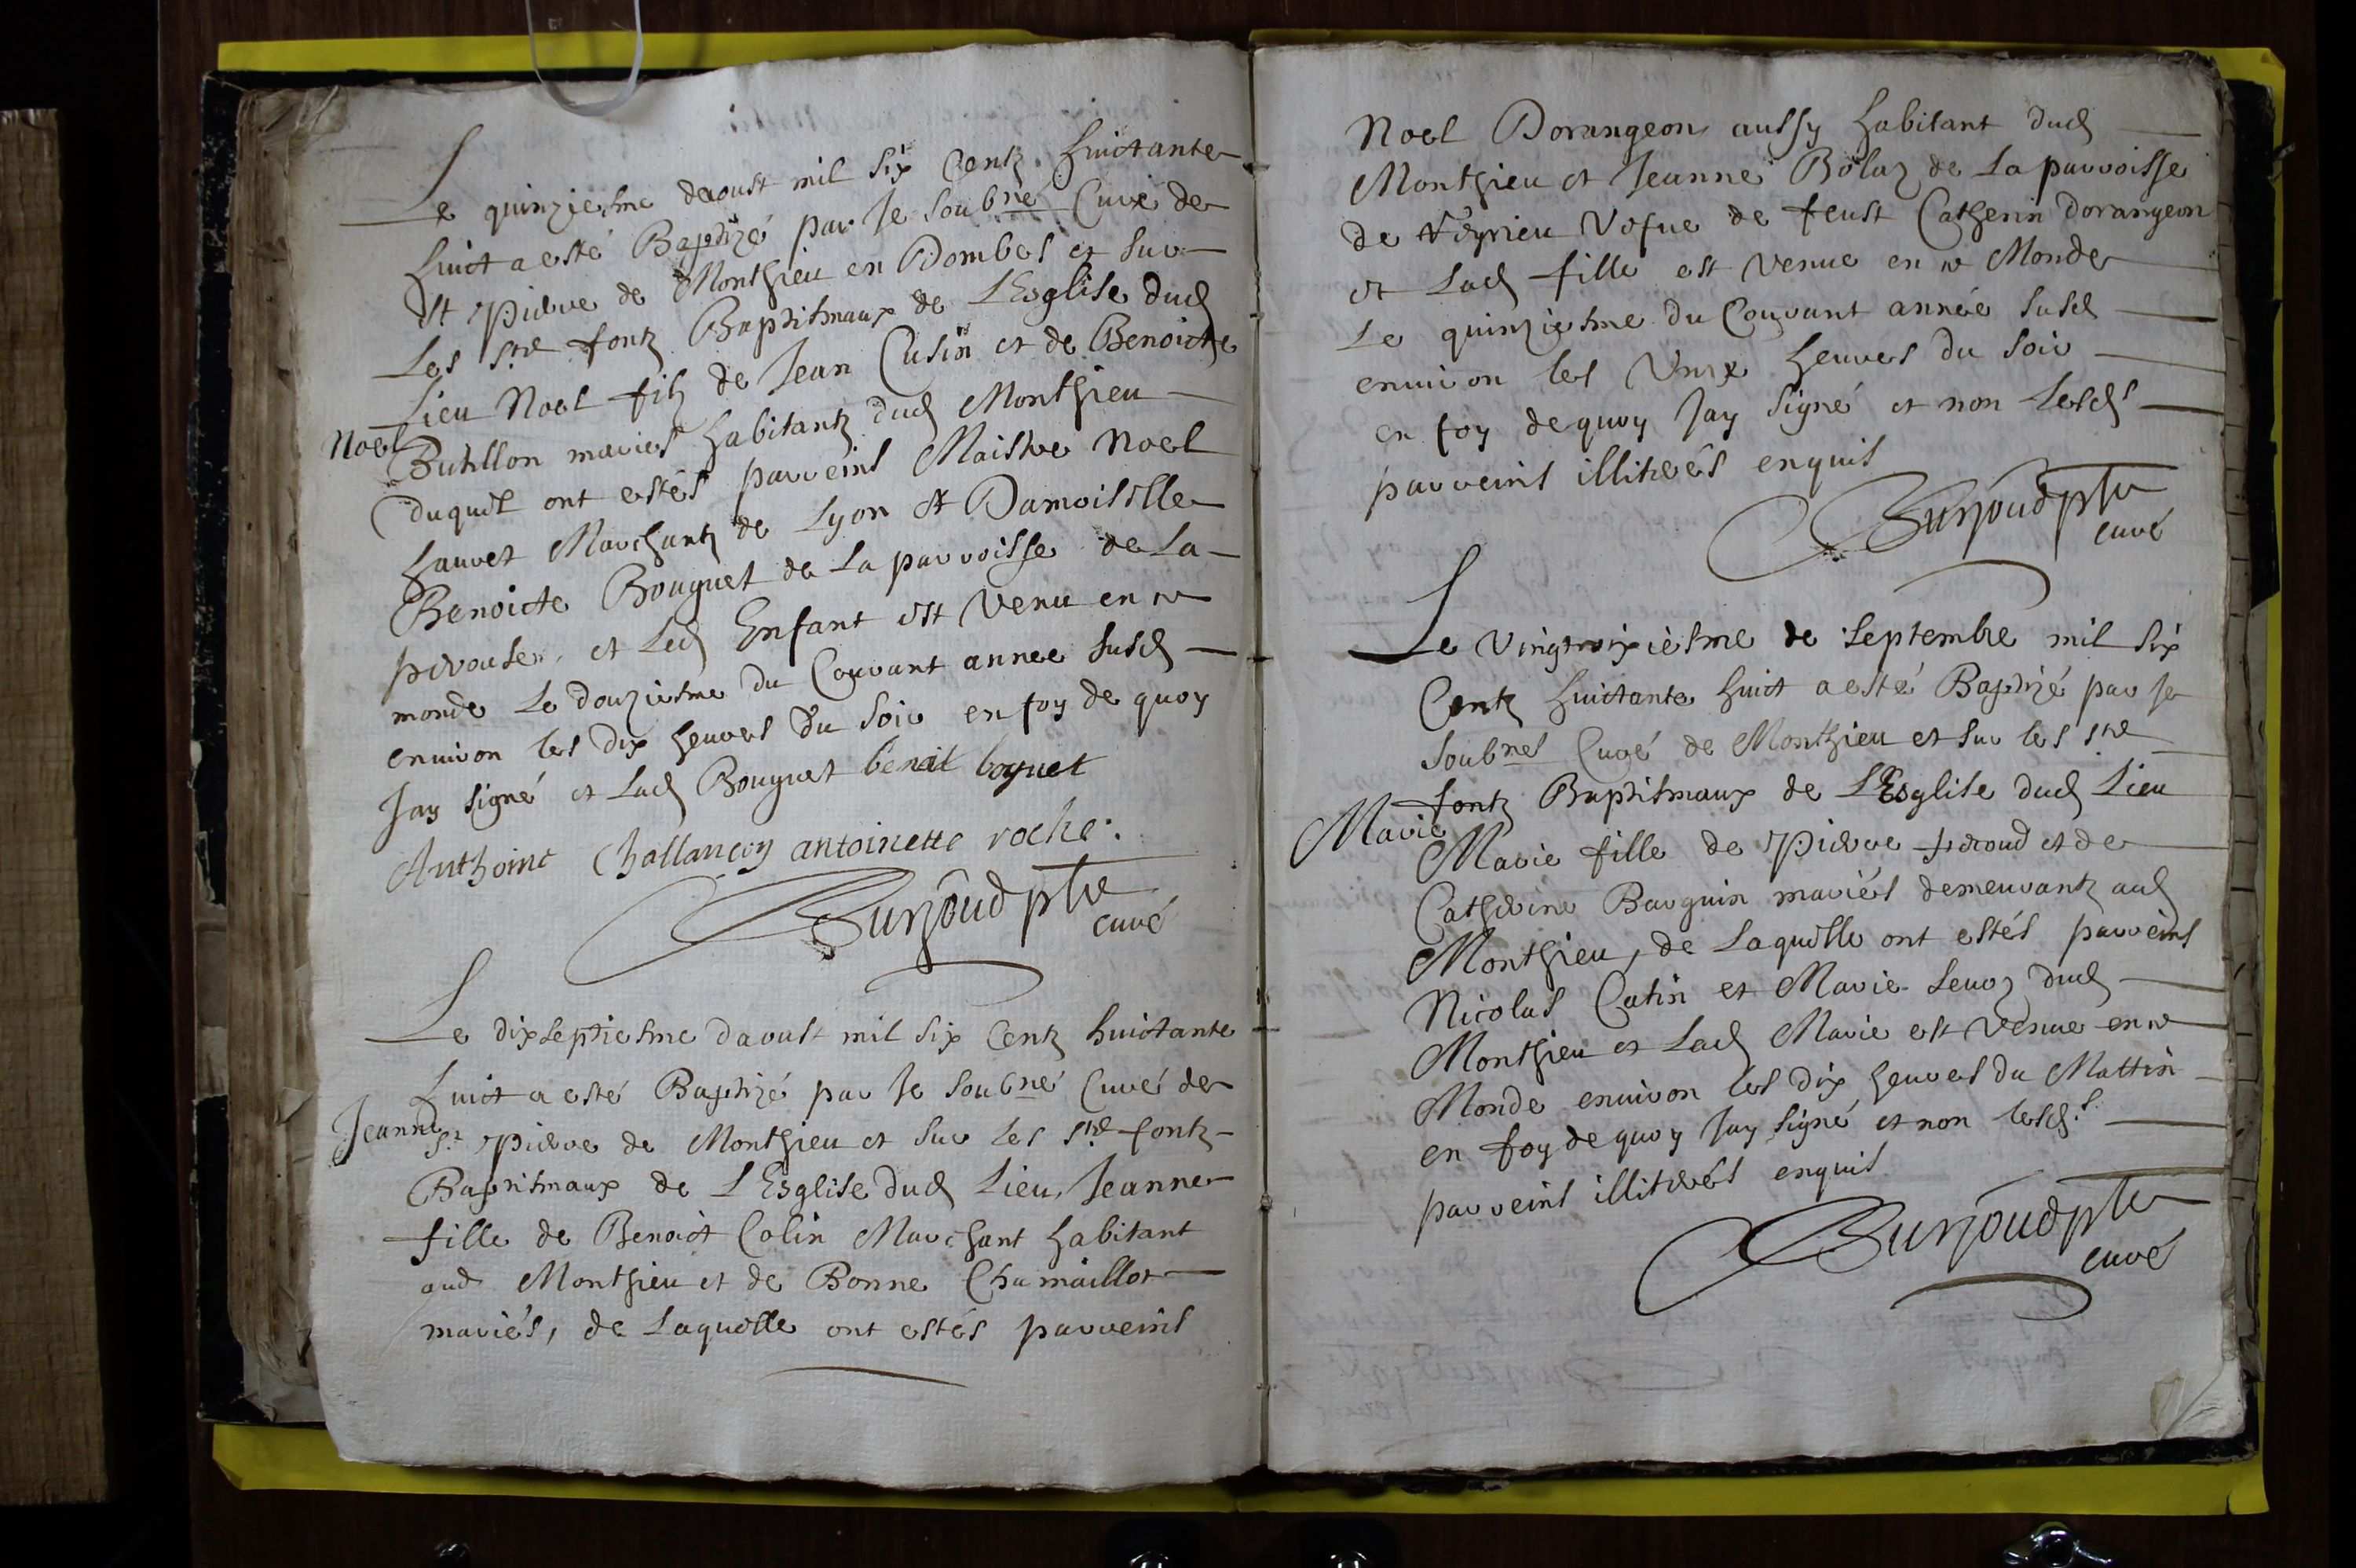 Le quinziesme daoust mil six Centz huictante
huict a esté Baptizé par Je soubné Curé de
St Pierre de Monthieu en Dombes et sur
Les Stz fontz Baptismaux de LEsglise dud
Lieu Noel filz de Jean Cusin et de Benoicte
Noel
Butillon mariés habitantz dud Monthieu
duquel ont estés parreins Maistre Noel
hauvet Marchantz de Lyon et Damoiselle
Benoicte Bouguet de La parroisse de La
peirouse, et Led Enfant est venu en ce
monde Le douziesme du Courant annee susd
environ les dix heures du soir en foy de quoy
Jay signé et Lad Bouguet benoit boguet
Anthoine Challançon antoinette roche.
Burjoud ptre
curé
Le dixseptiesme daoust mil six Centz huictante
huict a esté Baptizé par Je soubné Curé de
Jeanne
St Pierre de Monthieu et sur les Stz fontz
Baptismaux de LEsglise dud Lieu, Jeanne
fille de Benoict Colin Marchant habitant
aud Monthieu et de Bonne Chamaillot
mariés, de Laquelle ont estés parreins
Noel Dorangeon aussy habitant dud
Monthieu et Jeanne Bolaz de La parroisse
de Veyrieu Vefue de feust Catherin Dorangeon
et Lad fille est venue en ce Monde
Le quinziesme du Courant année susd
environ les Unze heures du soir
en foy de quoy Jay signé et non Lesds
parreins illiterés enquis
Burjoud ptre
curé
Le vingtroixiesme de septembre mil six
Centz huictante huict a esté Baptizé par Je
soubnes Curé de Monthieu et sur les Stz
fontz Baptismaux de LEsglise dud Lieu
Marie
Marie fille de Pierre feroud et de
Catherine Barguin mariés demeurantz aud
Monthieu, de Laquelle ont estés parreins
Nicolas Catin et Marie Sevoz dud
Monthieu et Lad Marie est venue en ce
Monde environ les dix heures du Mattin
en foy de quoy Jay signé et non lesds
parreins illiterés enquis
Burjoud ptre
curé